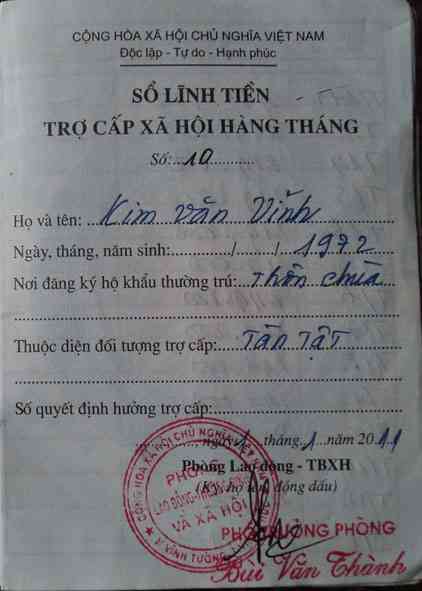 CỘNG HÒA XÃ HỘI CHỦ NGHĨA VIỆT NAM
Độc lập - Tự do - Hạnh phúc
SỔ LĨNH TIỀN
TRỢ CẤP XÃ HỘI HÀNG THÁNG
Số:...10............
Họ và tên: ...Kim Văn Vinh............
Ngày, tháng, năm sinh:............/........../...1972...
Nơi đăng ký hộ khẩu thường trú:...Thôn Chùa...
Thuộc diện đối tượng trợ cấp:......Tàn Tật............
Số quyết định hưởng trợ cấp:............
, ngày 1 tháng 1 năm 2011
Phòng Lao động - TBXH
(Ký, họ tên, đóng dấu)
CỘNG HÒA XÃ HỘI CHỦ NGHĨA VIỆT NAM
PHÒNG
LAO ĐỘNG-THƯƠNG BINH
VÀ XÃ HỘI
VĨNH TƯỜNG
PHÓ TRƯỞNG PHÒNG
Bùi Văn Thành